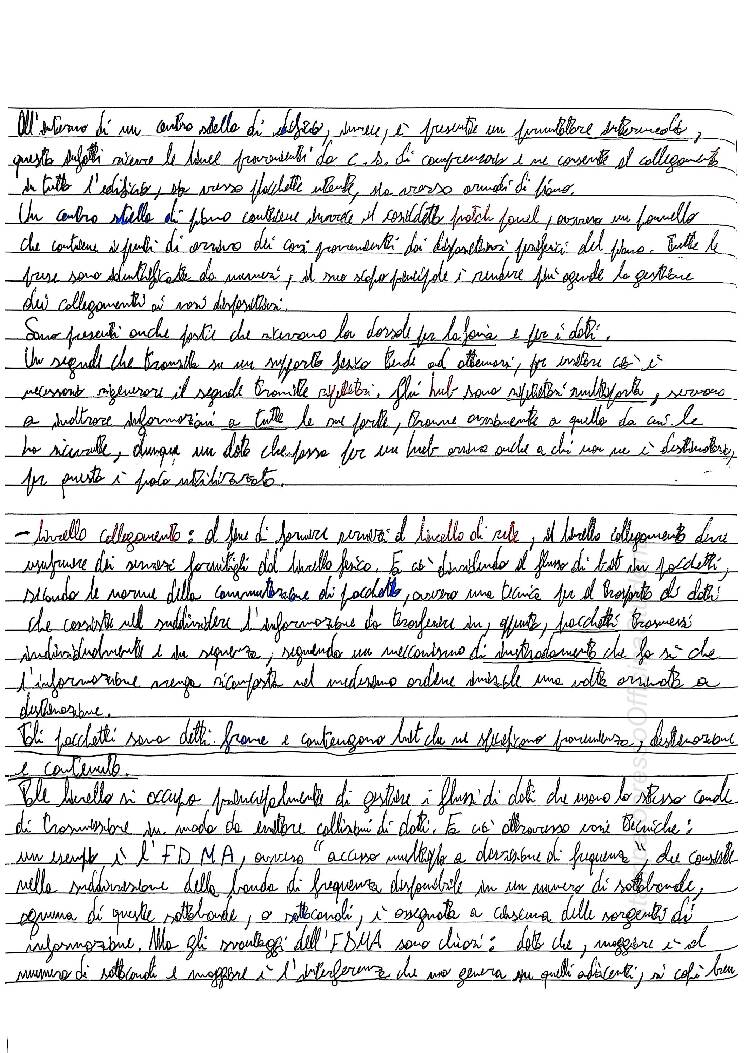 All'interno di un centro stella di edificio, invece, è presente un permutatore intermedio,
questo infatti riceve le linee provenienti da c.s. di comprensorio e ne consente il collegamento
in tutto l'edificio, sia verso placchette utente, sia verso armadi di piano.
Un centro stella di piano contiene invece il cosiddetto patch panel, ovvero un pannello
che contiene i punti di arrivo dei cavi provenienti dai dispositivi periferici del piano. Tutte le
prese sono identificate da numeri, il suo scopo principale è rendere più agevole la gestione
dei collegamenti ai vari dispositivi.
Sono presenti anche porte che ricevono la dorsale per la fonia e per i dati.
Un segnale che transita su un supporto fisico tende ad attenuarsi, per evitare ciò è
necessario rigenerare il segnale tramite ripetitori. Gli hub sono ripetitori multiporta, servono
a inoltrare informazioni a tutte le sue porte, tranne ovviamente a quella da cui le
ha ricevute, dunque un dato che passa per un hub arriva anche a chi non ne è destinatario,
per questo è poco utilizzato.
- Livello collegamento: al fine di fornire servizi al livello di rete, il livello collegamento deve
usufruire dei servizi fornitigli dal livello fisico. Fa ciò dividendo il flusso di bit in pacchetti,
secondo le norme della commutazione di pacchetto, ovvero una tecnica per il trasporto di dati
che consiste nel suddividere l'informazione da trasferire in, appunto, pacchetti trasmessi
individualmente e in sequenza, seguendo un meccanismo di instradamento che fa sì che
l'informazione venga ricomposta nel medesimo ordine iniziale una volta arrivata a
destinazione.
Tali pacchetti sono detti frame e contengono bit che ne specificano provenienza, destinazione
e contenuto.
Tale livello si occupa principalmente di gestire i flussi di dati che usano lo stesso canale
di trasmissione in modo da evitare collisioni di dati. Fa ciò attraverso varie tecniche:
un esempio è l'FDMA, ovvero "accesso multiplo a divisione di frequenza", che consiste
nella suddivisione della banda di frequenza disponibile in un numero di sottobande,
ognuna di queste sottobande, o sottocanali, è assegnata a ciascuna delle sorgenti di
informazione. Ma gli svantaggi dell'FDMA sono chiari: dato che, maggiore è il
numero di sottocanali e maggiore è l'interferenza che uno genera su quelli adiacenti, si capirà ben